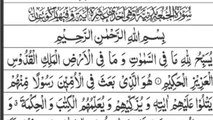 بِسْمِ اللّٰهِ الرَّحْمٰنِ الرَّحِيْمِ
يُسَبِّحُ لِلّٰهِ مَا فِى السَّمٰوٰتِ وَ مَا فِى الْاَرْضِ الْمَلِكِ الْقُدُّوْسِ
الْعَزِيْزِ الْحَكِيْمِ هُوَ الَّذِىْ بَعَثَ فِى الْاُمِّيّٖنَ رَسُوْلًا مِّنْهُمْ
يَتْلُوْا عَلَيْهِمْ اٰيٰتِهٖ وَ يُزَكِّيْهِمْ وَ يُعَلِّمُهُمُ الْكِتٰبَ وَ الْحِكْمَةَ وَ